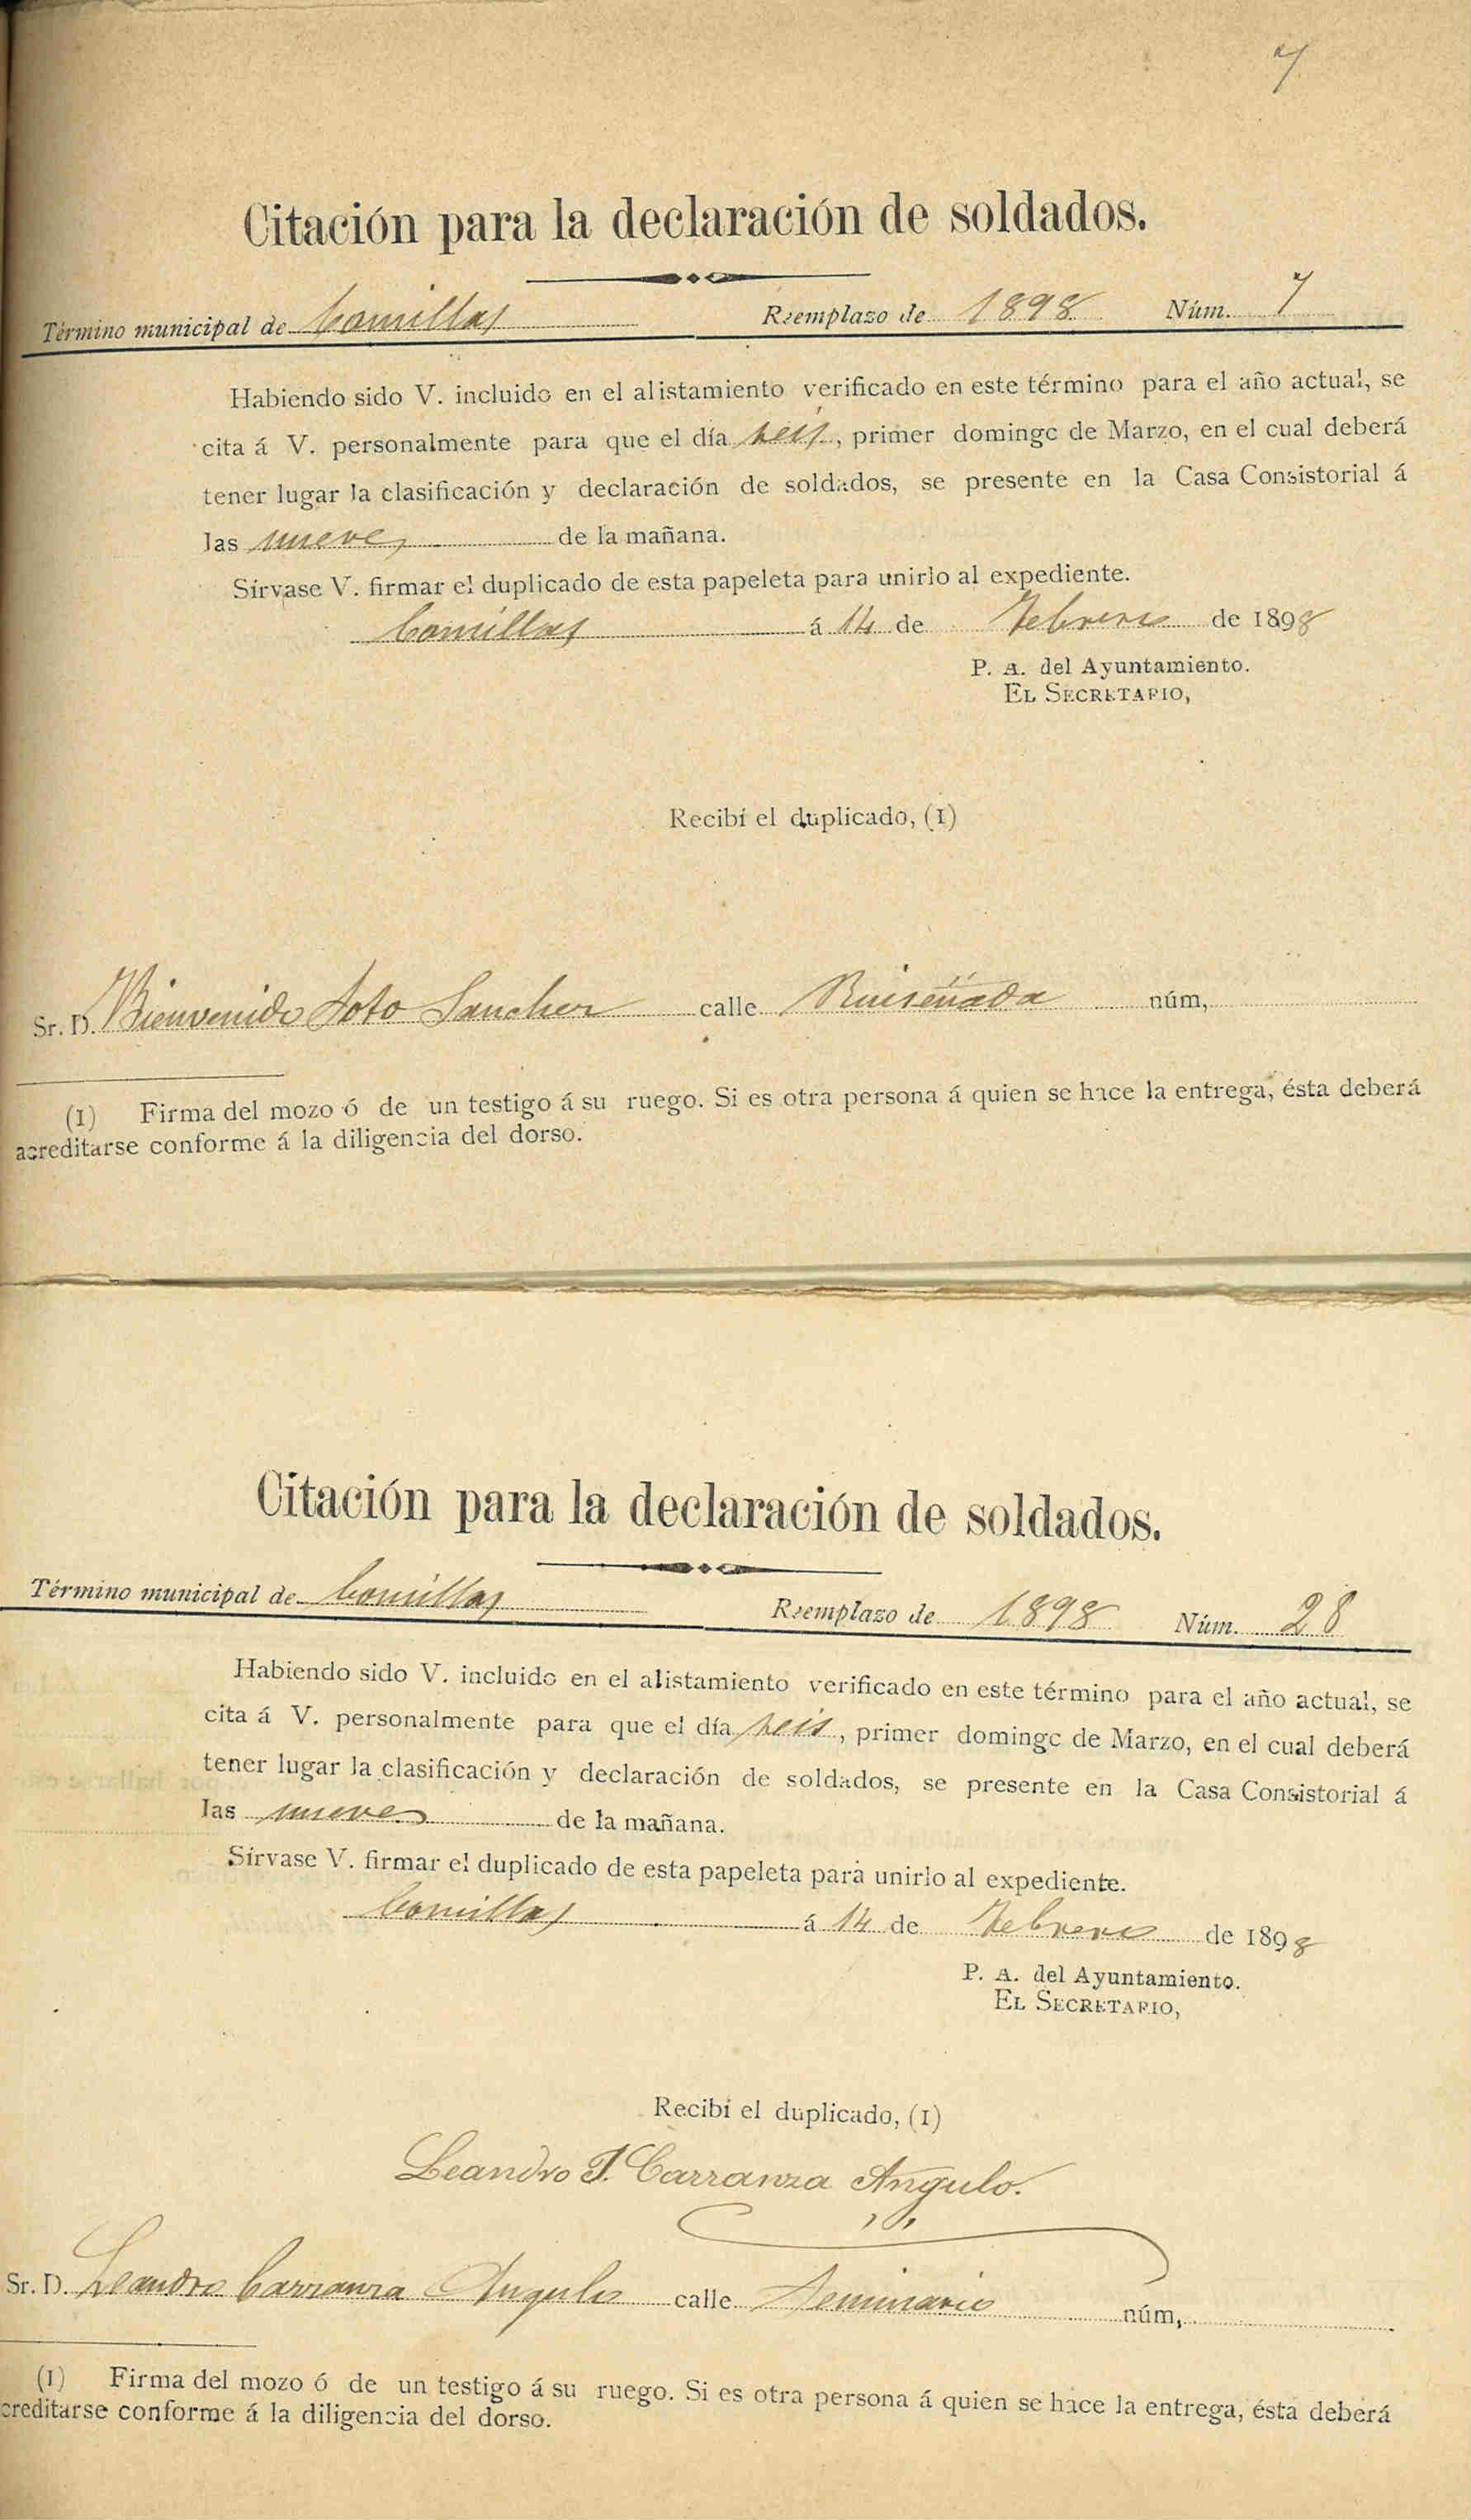 7
Citación para la declaración de soldados.
Término municipal de Comillas Reemplazo de 1898 Núm. 7
Habiendo sido V. incluido en el alistamiento verificado en este término para el año actual, se
cita á V. personalmente para que el día seis, primer domingo de Marzo, en el cual deberá
tener lugar la clasificación y declaración de soldados, se presente en la Casa Consistorial á
las nueve de la mañana.
Sírvase V. firmar el duplicado de esta papeleta para unirlo al expediente.
Comillas á 14 de Febrero de 1898
P. A. del Ayuntamiento.
EL SECRETARIO,
Recibí el duplicado, (1)
Sr. D. Bienvenido Soto Sanchez calle Ruiseñada núm,
(1) Firma del mozo ó de un testigo á su ruego. Si es otra persona á quien se hace la entrega, ésta deberá
acreditarse conforme á la diligencia del dorso.
Citación para la declaración de soldados.
Término municipal de Comillas Reemplazo de 1898 Núm. 28
Habiendo sido V. incluido en el alistamiento verificado en este término para el año actual, se
cita á V. personalmente para que el día seis, primer domingo de Marzo, en el cual deberá
tener lugar la clasificación y declaración de soldados, se presente en la Casa Consistorial á
las nueve de la mañana.
Sírvase V. firmar el duplicado de esta papeleta para unirlo al expediente.
Comillas á 14 de Febrero de 1898
P. A. del Ayuntamiento.
EL SECRETARIO,
Recibí el duplicado, (1)
Leandro J. Carranza Angulo.
Sr. D. Leandro Carranza Angulo calle Seminario núm,
(1) Firma del mozo ó de un testigo á su ruego. Si es otra persona á quien se hace la entrega, ésta deberá
creditarse conforme á la diligencia del dorso.